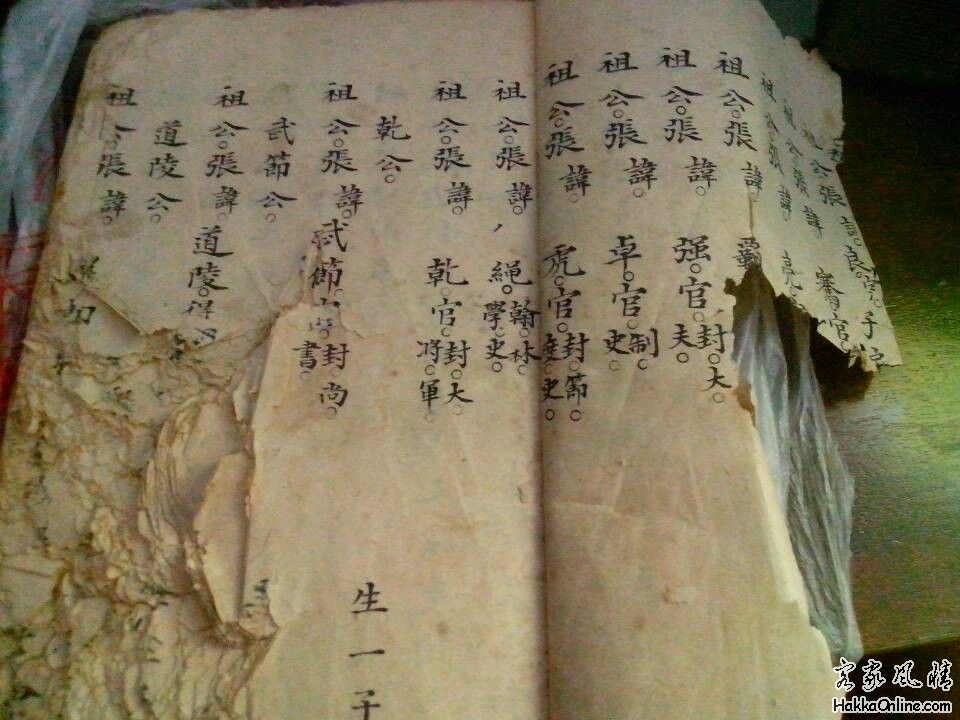 祖公張諱
祖公張諱
祖公張諱霸
祖公張諱强官封大夫
祖公張諱卓官制史
祖公張諱虎官封節度史
祖公張諱繩翰林學史
祖公張諱乾官封大將軍
乾公
祖公張諱武節官 封尚書
武節公
生一子
祖公張諱道陵得
道陵公
祖公張諱
客家風情
HakkaOnline.com